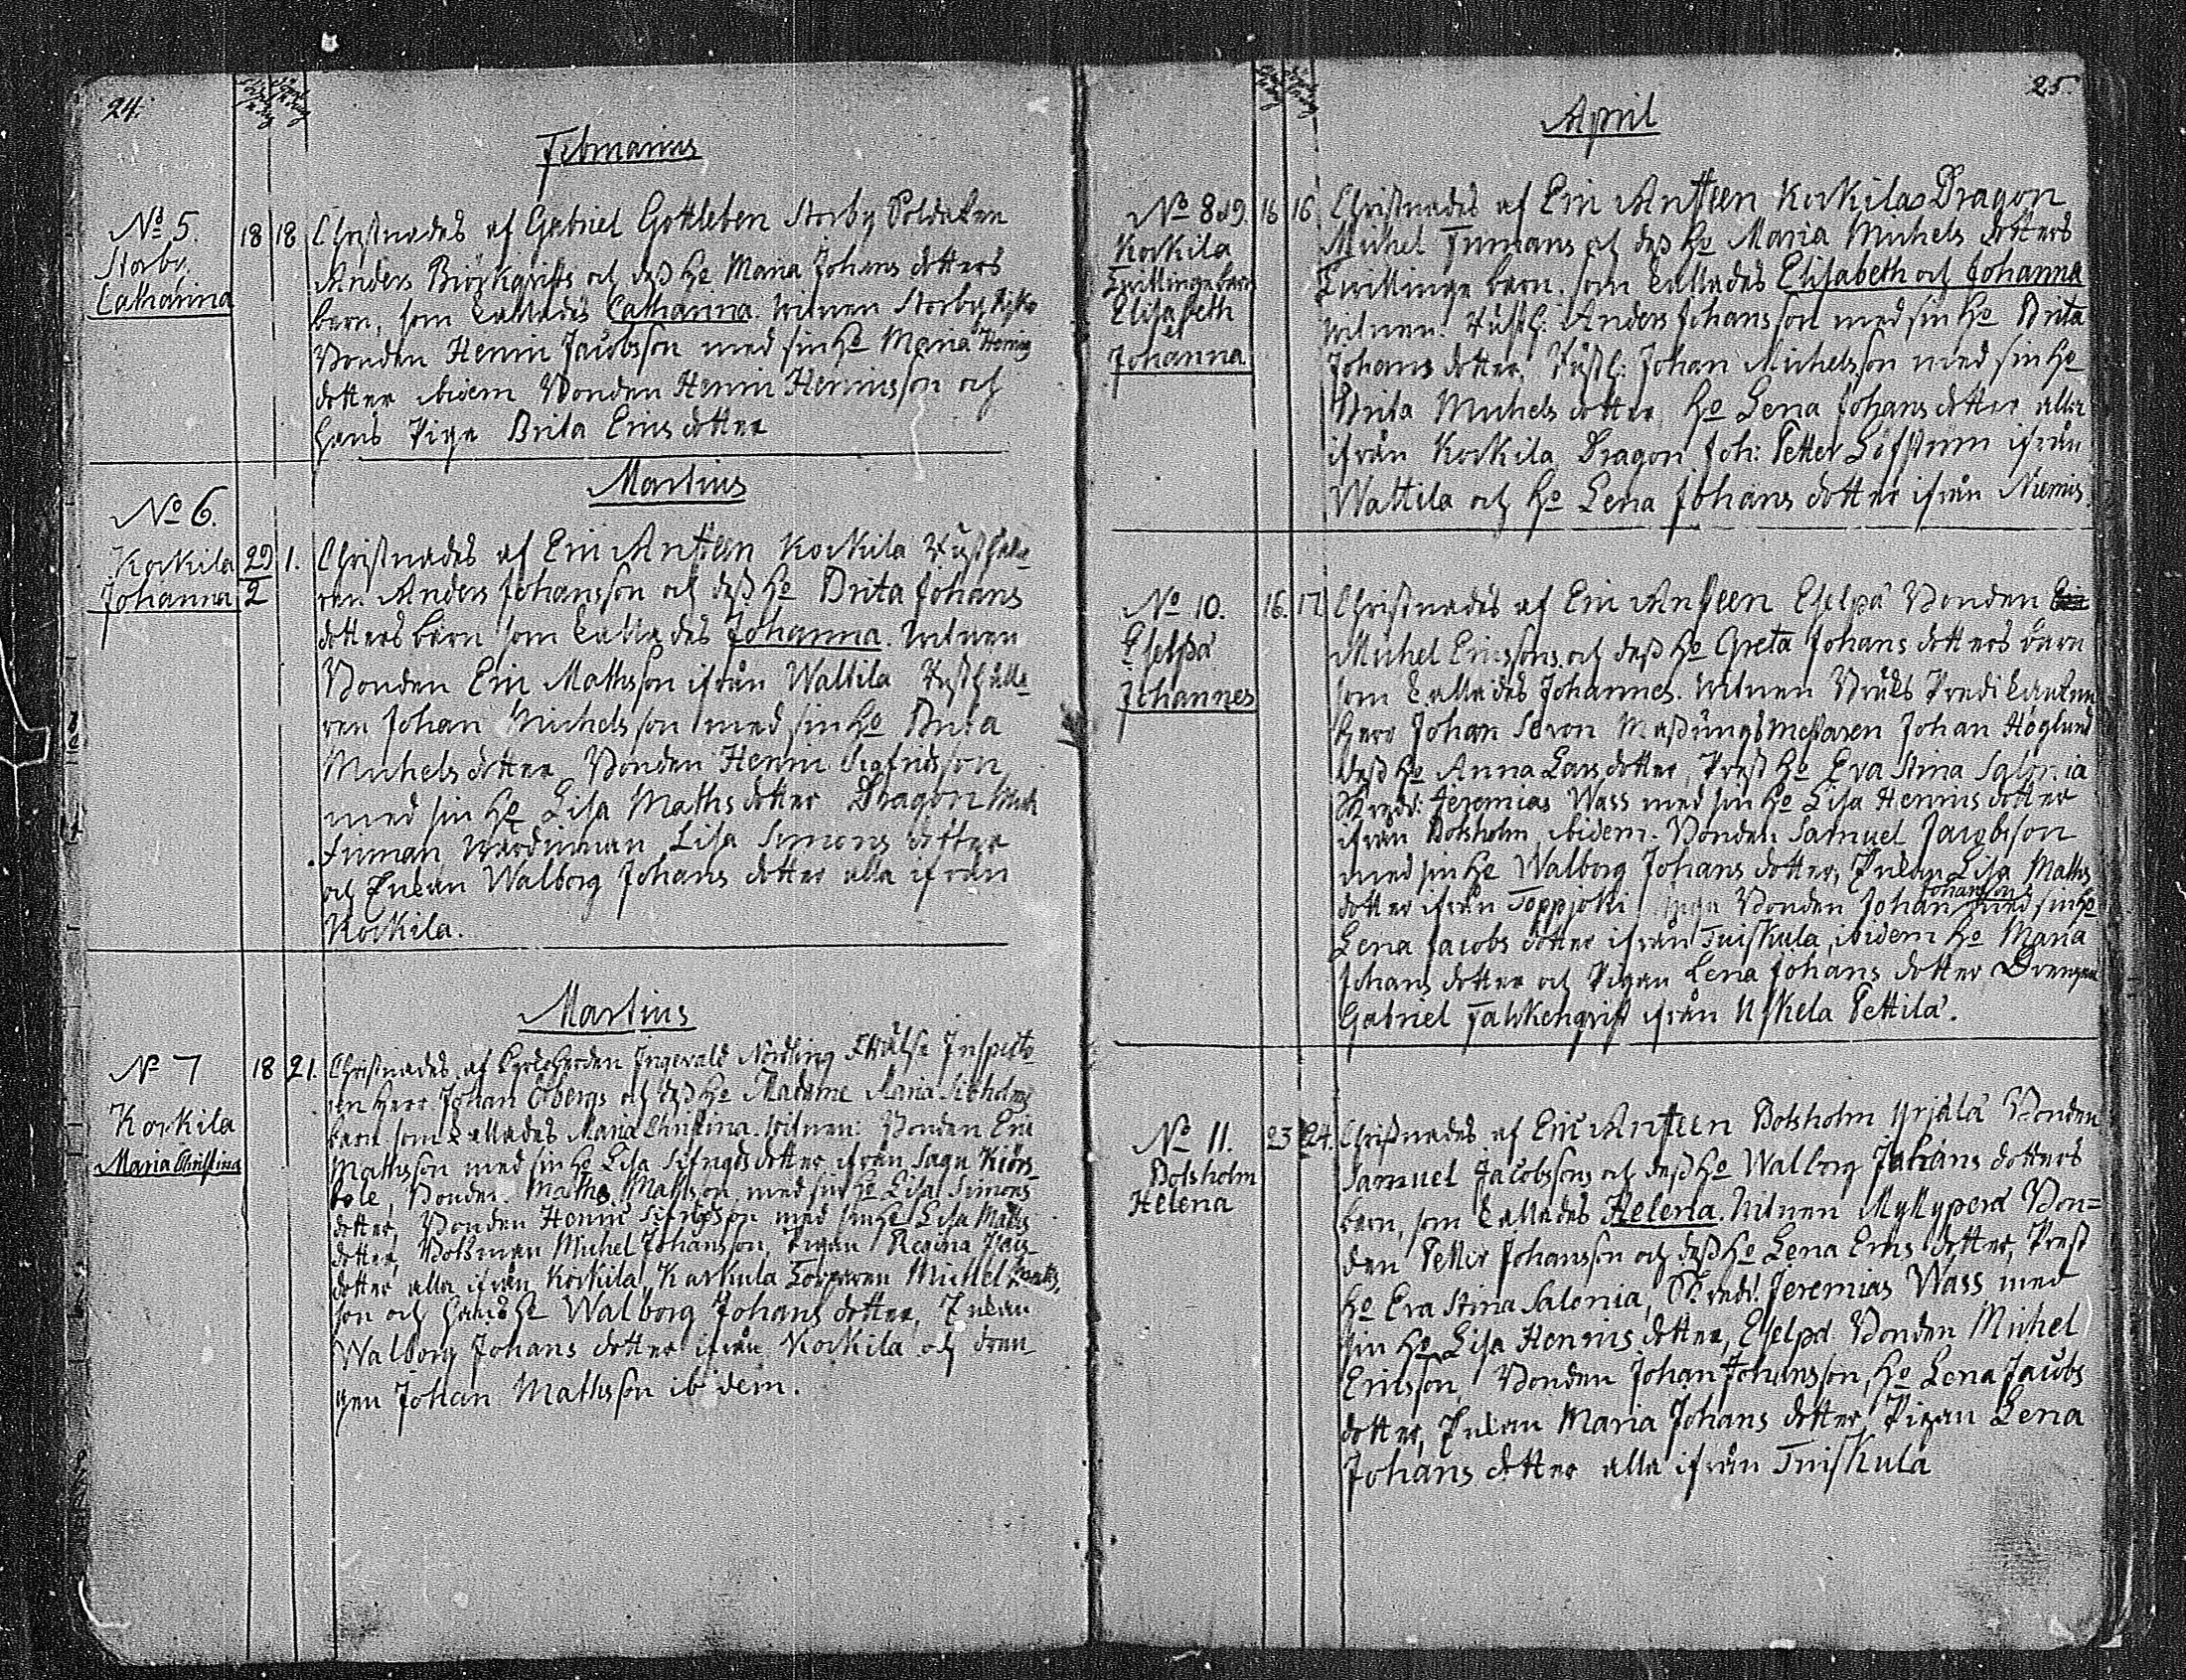 24.
Februarius
No 5.
Storby
Catharina
18 18
Christnades af Gabriel Gottleben Storby Soldaten
Anders Biörkqvists och dess Ho Maria Johans dotters
barn, som kallades Catharina. Witnen Storby
Bonden Henric Jacobsson med sin Ho Maria Henrics
dotter ibidem Bonden Henric Henricsson och
hans Piga Brita Erics dotter
Martius
No 6.
Korkila
Johanna
29/2 1.
Christnades af Eric Anteen Korkila Rusthålla-
ren Anders Johansson och dess Ho Brita Johans
dotters barn som kallades Johanna. Witnen
Bonden Eric Mathsson ifrån Wattila Rusthålla-
ren Johan Michelsson med sin Ho Brita
Michels dotter Bonden Henric Sigfridsson
med sin Ho Lisa Maths dotter Dragon Mich
Finman Lisa Simons dotter
och Enkan Walborg Johans dotter alla ifrån
Korkila.
Martius
No 7
Korkila
Maria Christina
18 21.
Christnades af Ingevald Nordling Inspecto
ren Herr Johan Öbergs och dess Ho Madame Maria
barn som kallades Maria Christina. Witnen: Bonden Eric
Mathsson med sin Ho Lisa Sifrids dotter ifrån Sagu
Bonden Maths Mathsson med sin Ho Lisa Simons
dotter, Bonden Henric Sifridsson med sin Ho Lisa Maths
dotter, Båtsman Michel Johansson, Pigan Regina
dotter alla ifrån Korkila, Karkula Torparen Michel Maths
son och hans Ho Walborg Johans dotter, Enkan
Walborg Johans dotter ifrån Korkila och dren
gen Johan Mathsson ibidem.
25.
April
No 8 et 9.
Korkila
Twillingebarn
Elisabeth
et
Johanna
16 16
Christnades af Eric Anteen Korkilas Dragon
Michel Finmans och dess Ho Maria Michels dotters
Twillinge barn. som kallades Elisabeth och Johanna
witnen. Rusth: Anders Johansson med sin Ho Brita
Johans dotter, Rusth: Johan Michelsson med sin Ho
Brita Michels dotter, Ho Lena Johans dotter alla
ifrån Korkila, Dragon Joh: Petter Löfström ifrån
Wattila och Ho Lena Johans dotter ifrån Niemis.
No 10.
Eselpä
Johannes
16. 17
Christnades af Eric Anteen Eselpä Bonden
Michel Ericssons och dess Ho Greta Johans dotters barn
som kallades Johannes. Witnen Bruks Predikanten
Herr Johan Masungsmästaren Johan Höglund
dess Ho Anna Lars dotter, Prest Ho Eva Stina Salonia
Jeremias Wass med sin Ho Lisa Henrics dotter
ifrån Bolsholm, ibidem. Bonden Samuel Jacobsson
med sin Ho Walborg Johans dotter, Enkan Lisa Maths
dotter ifrån Toppjoki Bonden Johan Johansson med sin Ho
Lena Jacobs dotter ifrån Tuiskula, ibidem Ho Maria
Johans dotter och Pigan Lena Johans dotter Drengen
Gabriel Falkenqvist ifrån Uskela Pettilä.
No 11.
Bolsholm
Helena
23 24.
Christnades af Eric Anteen Bolsholm Yrjälä Bonden
Samuel Jacobssons och dess Ho Walborg Johans dotters
barn, som kallades Helena. Witnen Myllyperä Bon=
den Petter Johansson och dess Ho Lena Erics dotter, Prest
Ho Eva Stina Salonia, Jeremias Wass med
sin Ho Lisa Henrics dotter, Eselpä Bonden Michel
Ericsson, Bonden Johan Johansson, Ho Lena Jacobs
dotter, Enkan Maria Johans dotter, Pigan Lena
Johans dotter alla ifrån Tuiskula